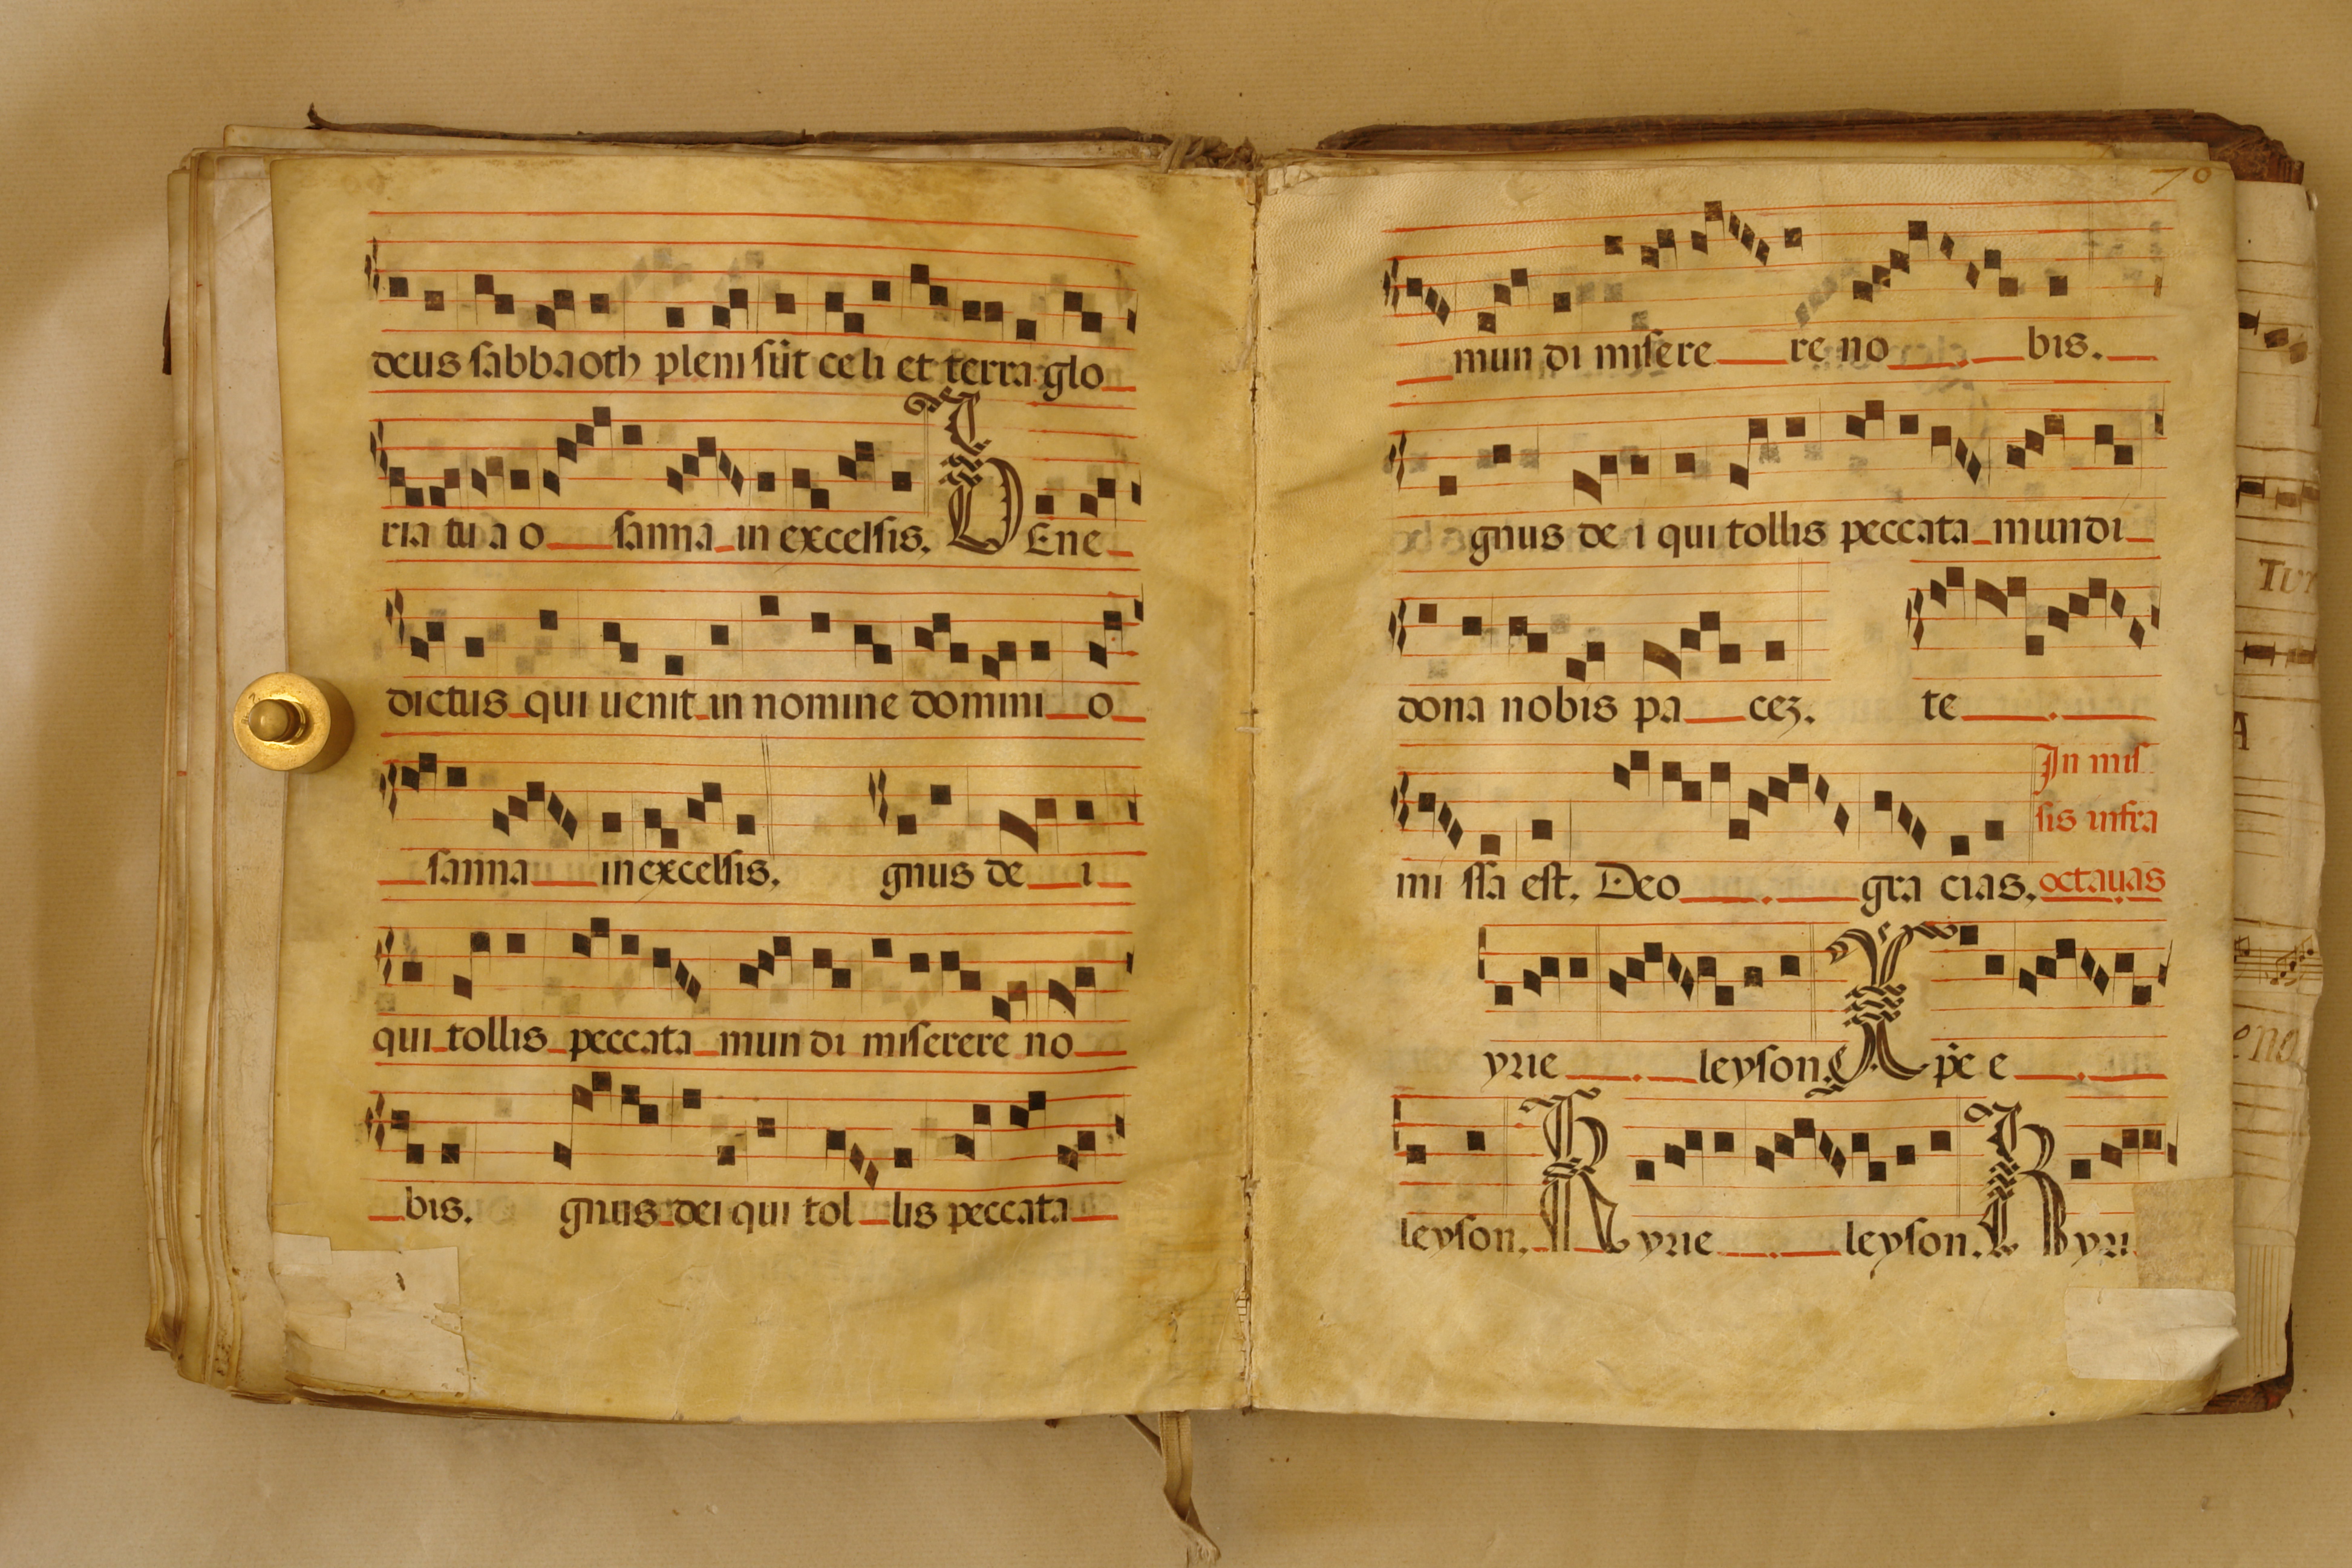 deus sabbaoth pleni sũt celi et terra glo
ria tua o sanna in excelsis. BEne
dictus qui uenit in nomine domini o
sanna in excelsis. gnus de i
qui tollis peccata mundi miserere no
bis. gnus dei qui tollis peccata
70
mundi misere re no bis.
gnus dei qui tollis peccata mundi
dona nobis pa cez. te
In mis
sis infra
mi ssa est. Deo gra cias. octauas
yrie leyson. Xp̃e e
leyson. Kyrie leyson. Kyri